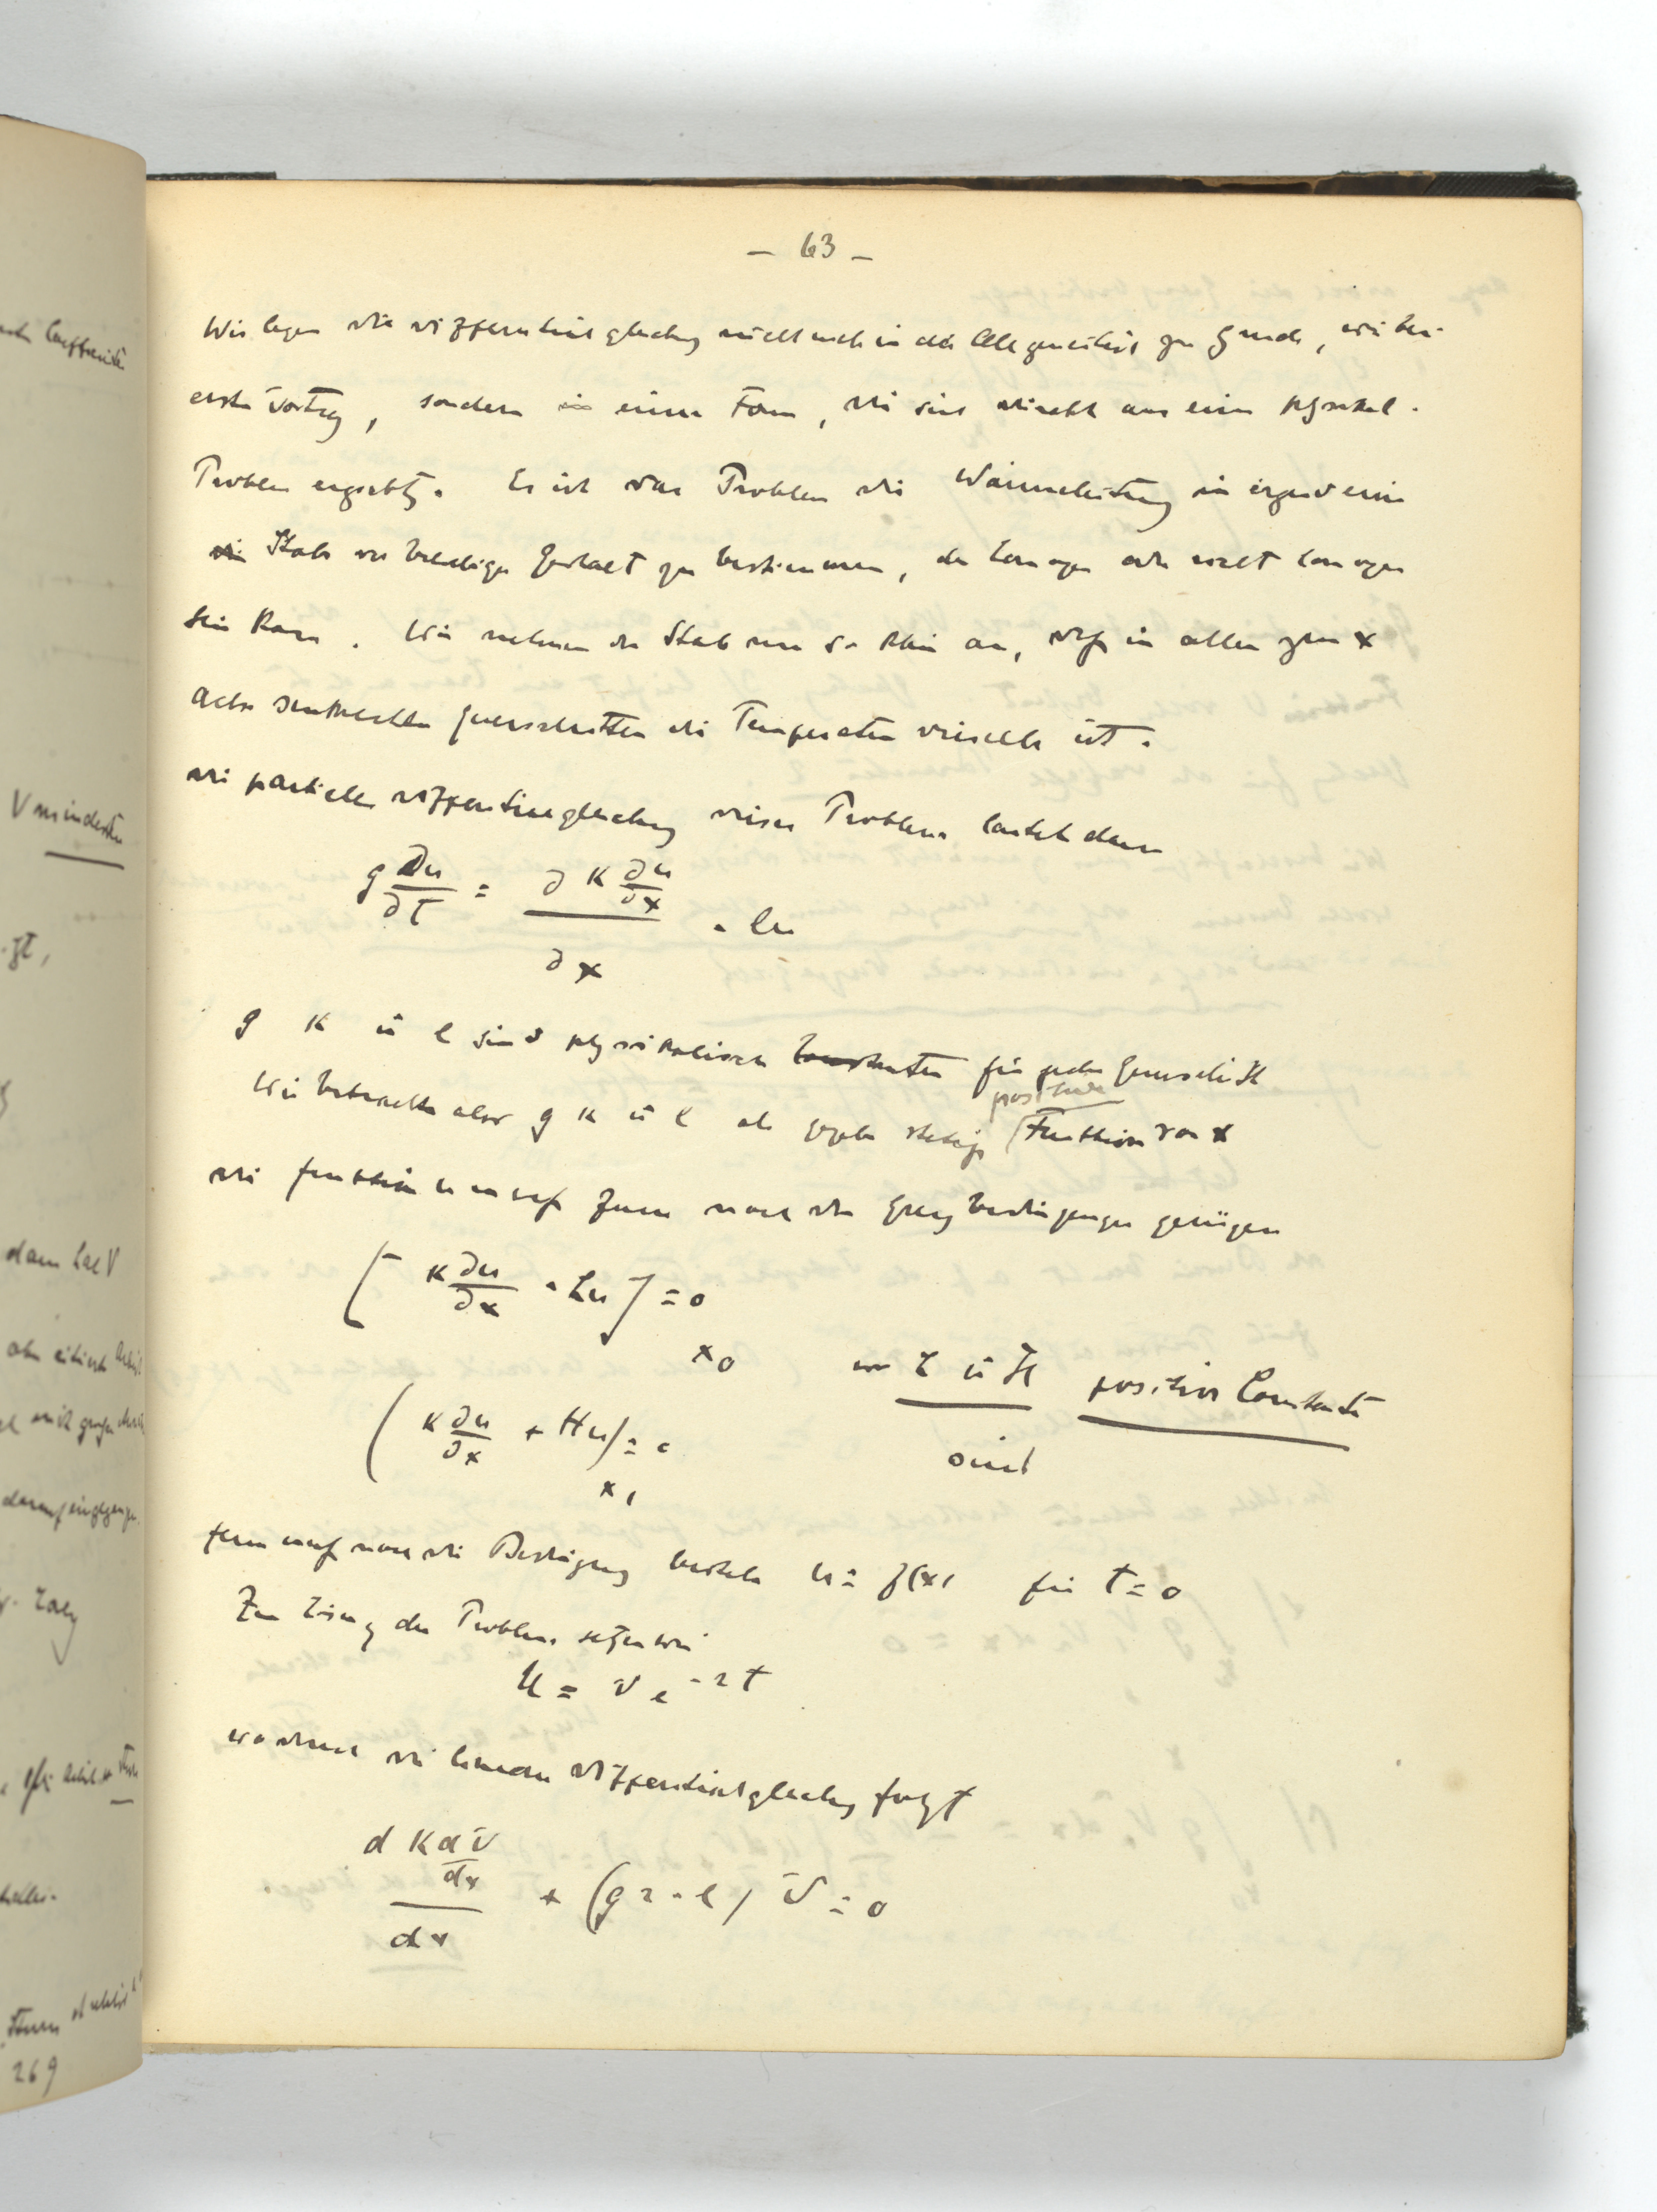 – 63 –
Wir legen die Differentialgleichung nicht mehr in der Allgemeinheit zu Grunde, wie bei
ersten Vortrag, sondern in einer Form, die sich direkt aus einem physikal.
Problem ergiebt. Es ist das Problem die Wärmeleitung in irgend einem
Stabe von beliebiger Gestalt zu bestimmen, der homogen oder nicht homogen
sein kann. Wir nehmen den Stab nun so klein an, daß in allen zur x
Achse senkrechten Querschnitten die Temperatur dieselbe ist.
Die partielle Differentialgleichung dieses Problems lautet dann
g ∂u/∂t = ∂ K ∂u/∂x / ∂x - lu
g K u l sind physikalische Constanten für jeden Querschnitt
positive
Wir betrachten aber g K u l als gegebene stetige Funktion von x
Die Funktion u muß ferner noch den Grenzbedingungen genügen
[K ∂u/∂x - hu] = 0
x0 wo h u H positive Constante
(K ∂u/∂x + Hu) = 0 sind
x1
ferner muß noch die Bedingung bestehen u = f(x) für t = 0
Zur Lösung des Problems setzen wir
U = V e^-rt
woraus die lineare Differentialgleichung folgt
d K dV/dx / dx + (gr - l) V = 0
V mindestens
dann hat V
269